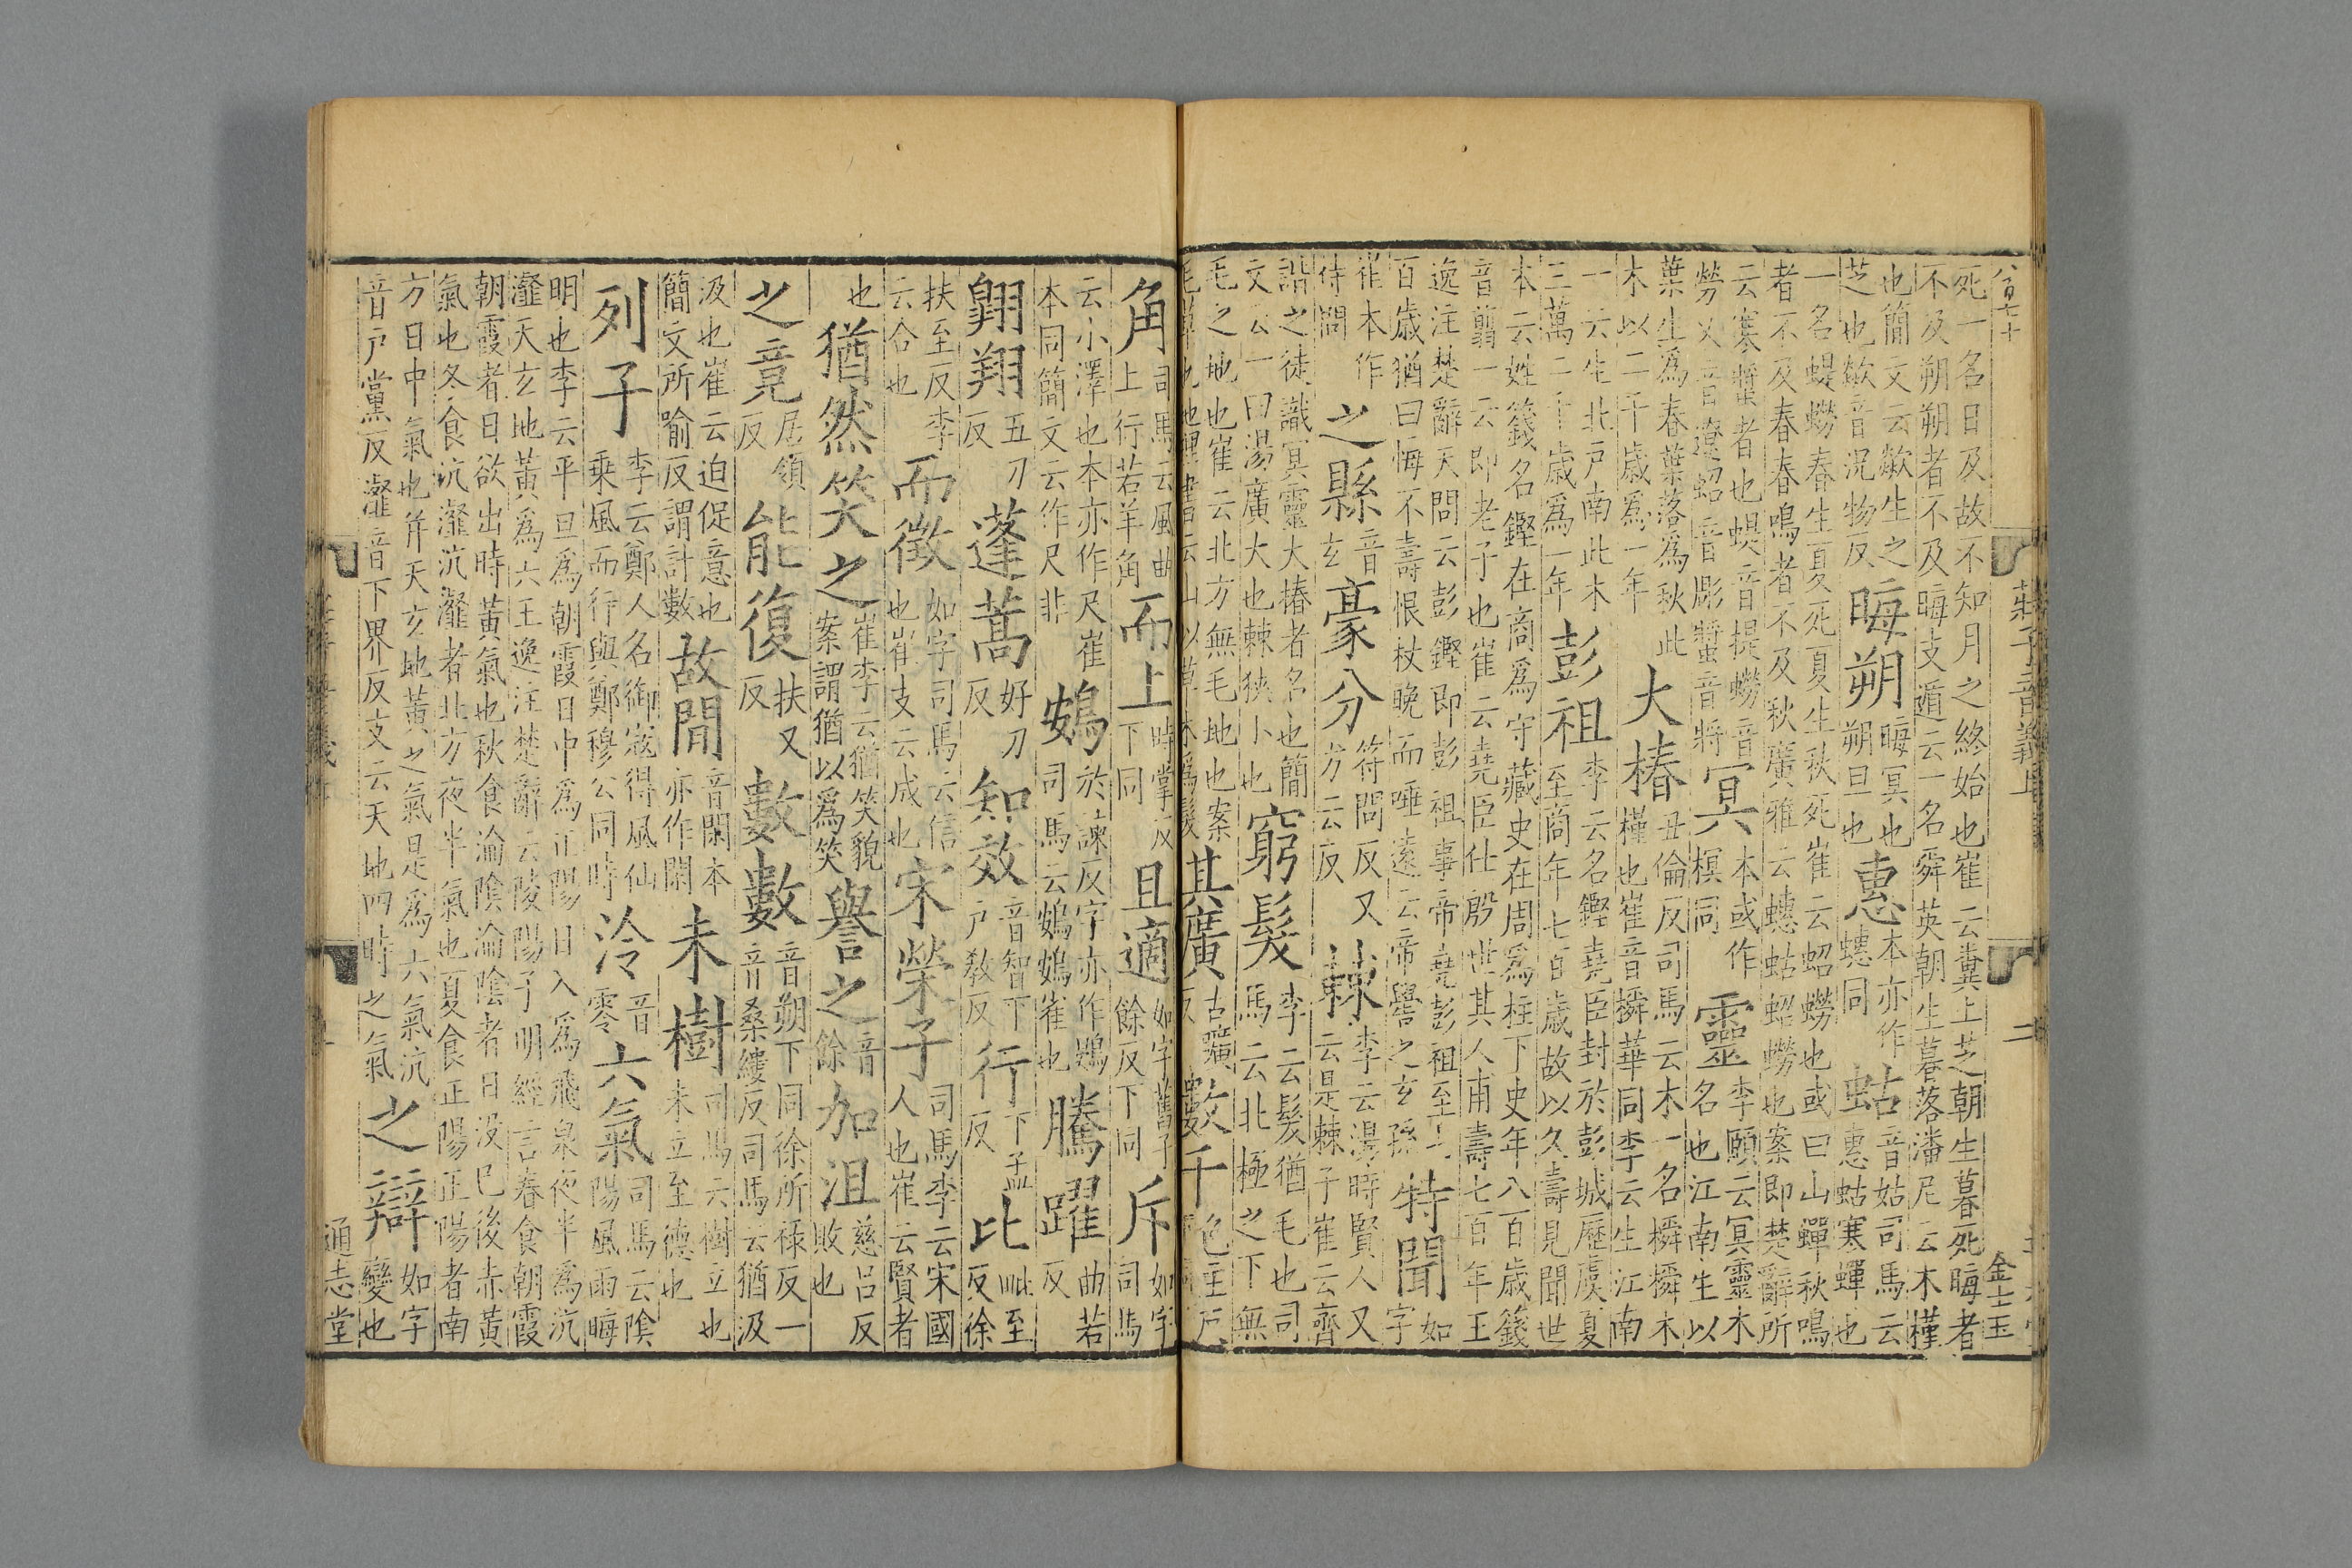 莊子音義上 二 金士玉
死一名日及故不知月之終始也崔云糞上芝朝生暮死晦者
不及朔朔者不及晦支遁云一名舜英朝生暮落潘尼云木槿
也簡文云欻生之芝也欻音況物反晦朔晦冥也朔旦也惠本亦作蟪同蛄音姑司馬云惠蛄寒蟬也
一名蝭蟧春生夏死夏生秋死崔云蛁蟧也或曰山蟬秋鳴
者不及春春鳴者不及秋廣雅云蟪蛄蛁蟧也案即楚辭所
云寒螿者也蝭音提蟧音勞又音遼蛁音彫螿音將冥本或作榠同靈李頤云冥靈木名也江南生以
葉生為春葉落為秋此木以二千歲為一年大椿丑倫反司馬云木一名橓橓木槿也崔音橓華同李云生江南
一云生北戶南此木三萬二千歲為一年彭祖李云名鏗堯臣封於彭城歷虞夏至商年七百歲故以久壽見聞世
本云姓籛名鏗在商為守藏史在周為柱下史年八百歲籛
音翦一云即老子也崔云堯臣仕殷世其人甫壽七百年王
逸注楚辭天問云彭鏗即彭祖事帝堯彭祖至七百歲猶曰悔不壽恨杖晚而唾遠云帝嚳之玄孫特聞如字
崔本作待問之縣音玄豪分符問反又方云反棘李云湯時賢人又云是棘子崔云齊
諧之徒識冥靈大椿者名也簡文云一曰湯廣大也棘狹小也窮髮李云髮猶毛也司馬云北極之下無
毛之地也崔云北方無毛地也案毛草也地理書云山以草木為髮其廣古曠反數千色主反
角司馬云風曲上行若羊角而上時掌反下同且適如字舊子餘反下同斥如字司馬
云小澤也本亦作尺崔本同簡文云作尺非鴳於諫反字亦作鷃司馬云鴳鴳雀也騰躍曲若反
翺翔五刀反蓬蒿好刀反知效音智下戶教反行下孟反比毗至反徐
扶至反李云合也而徵如字司馬云信也崔支云成也宋榮子司馬李云宋國人也崔云賢者
也猶然笑之崔李云猶笑貌案謂猶以為笑譽之音餘加沮慈呂反敗也
之竟居領反能復扶又反數數音朔下同徐所祿反一音桑縷反司馬云猶汲
汲也崔云迫促意也簡文所喻反謂計數故閒音閑本亦作閑未樹司馬云樹立也未立至德也
列子李云鄭人名御寇得風仙乘風而行與鄭穆公同時泠音零六氣司馬云陰陽風雨晦
明也李云平旦為朝霞日中為正陽日入為飛泉夜半為沆
瀣天玄地黃為六王逸注楚辭云陵陽子明經言春食朝霞
朝霞者日欲出時黃氣也秋食淪陰淪陰者日沒已後赤黃
氣也冬食沆瀣沆瀣者北方夜半氣也夏食正陽正陽者南
方日中氣也并天玄地黃之氣是為六氣沆音戶黨反瀣音下界反支云天地四時之氣之辯如字變也
通志堂